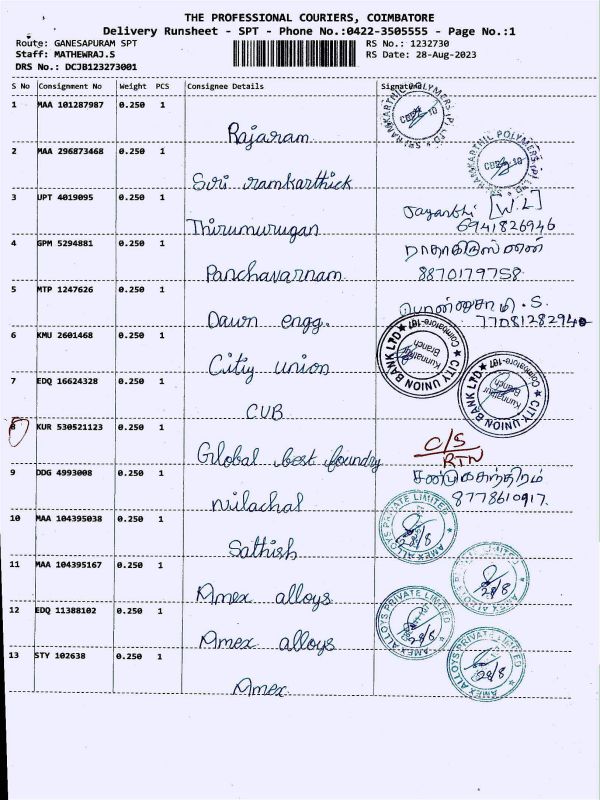 THE PROFESSIONAL COURIERS, COIMBATORE
Delivery Runsheet - SPT - Phone No.:0422-3505555 - Page No.:1
Route: GANESAPURAM SPT RS No.: 1232730
Staff: MATHEWRAJ.S RS Date: 28-Aug-2023
DRS No.: DCJB123273001
S No Consignment No Weight PCS Consignee Details Signature
1 MAA 101287987 0.250 1
Rajaram
2 MAA 296873468 0.250 1
Siri ramkarthick
3 UPT 4019095 0.250 1 Jayanthi [W.L]
Thirumurugan 6941826946
4 GPM 5294881 0.250 1
Panchavarnam 8870179758
5 MTP 1247626 0.250 1
Dawn engg. 7708128294
6 KMU 2601468 0.250 1 CITY UNION BANK LTD Kunnathur Branch Coimbatore-107
Citiy union
7 EDQ 16624328 0.250 1 CITY UNION BANK LTD Kunnathur Branch Coimbatore-107
CUB
8 KUR 530521123 0.250 1 C/S
Global best foundry RTN
9 DDG 4993008 0.250 1
Nilachal 8778610917
10 MAA 104395038 0.250 1 AMEX ALLOYS PRIVATE LIMITED 28/8
Sathish
11 MAA 104395167 0.250 1 AMEX ALLOYS PRIVATE LIMITED 28/8
Amex alloys
12 EDQ 11388102 0.250 1 AMEX ALLOYS PRIVATE LIMITED 28/8
Amex alloys
13 STY 102638 0.250 1 AMEX ALLOYS PRIVATE LIMITED 28/8
Amex